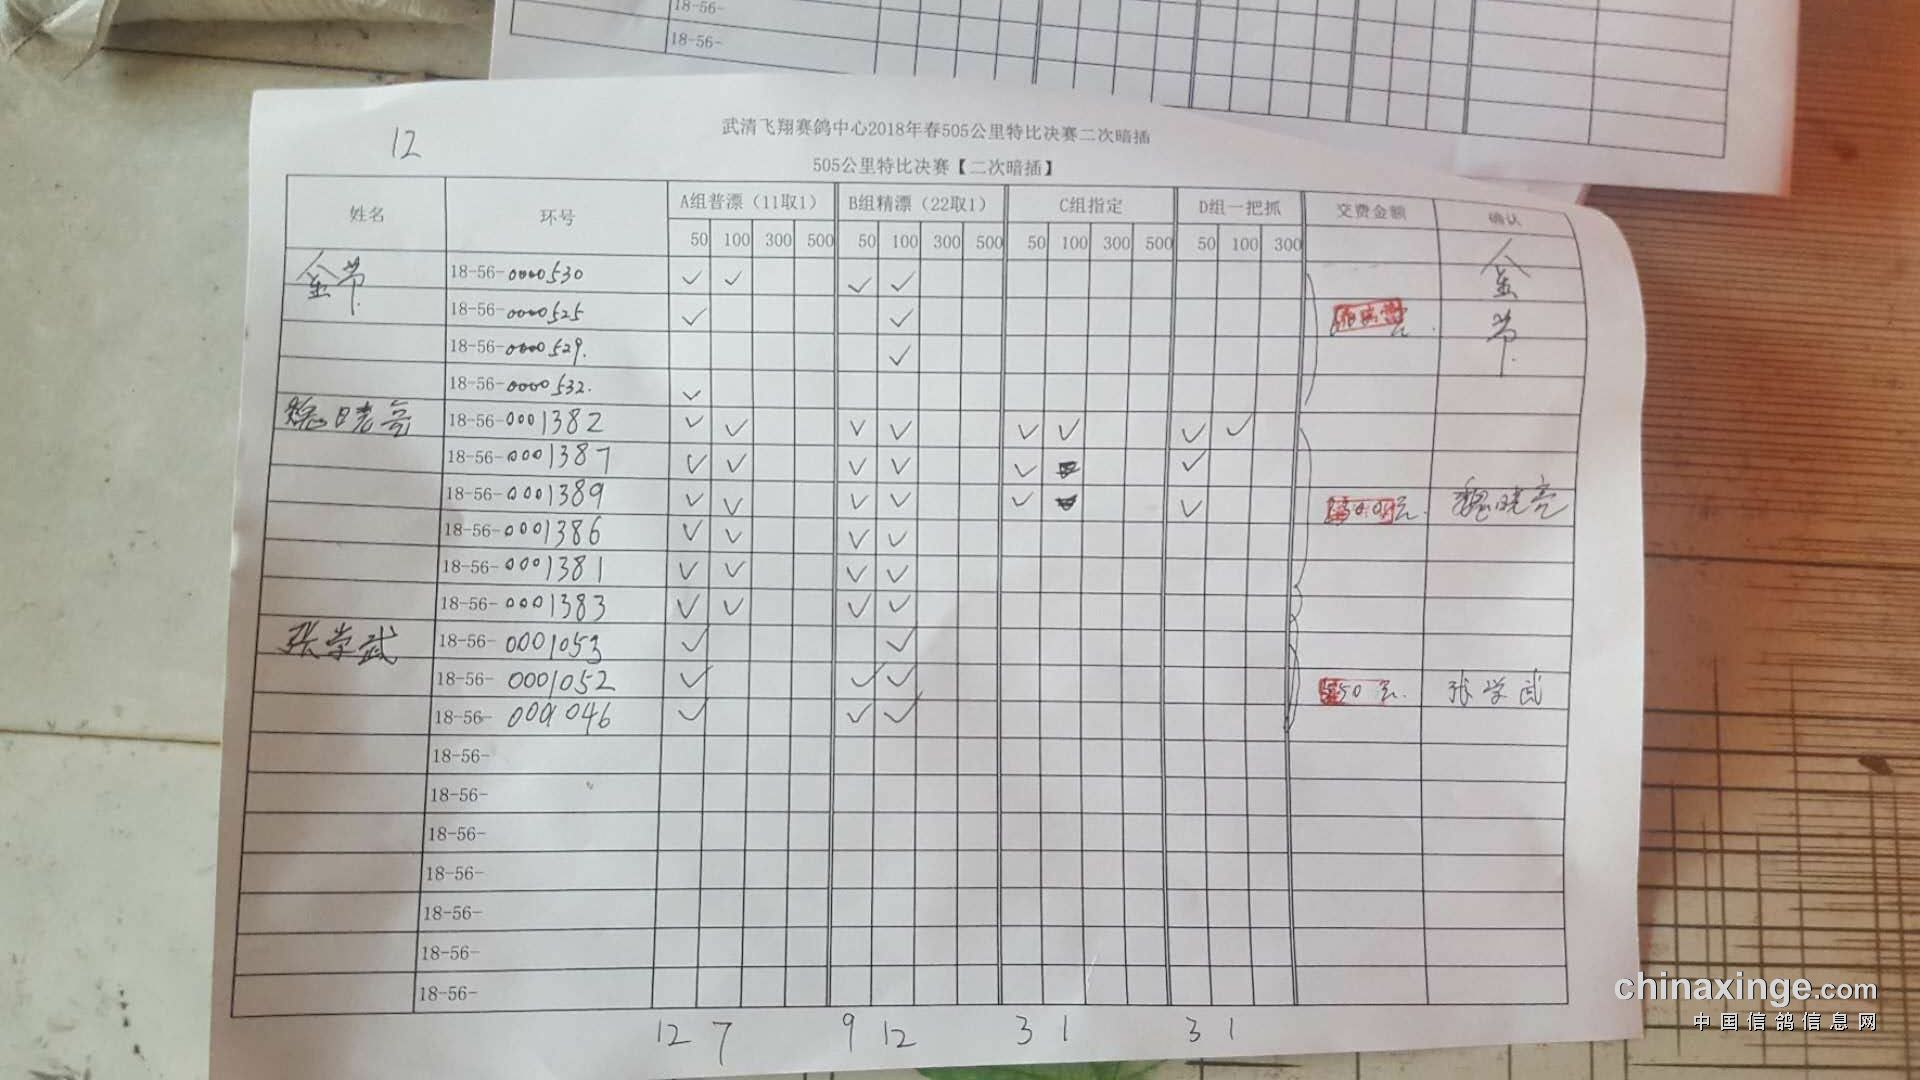 18-56-
18-56-
12
武清飞翔赛鸽中心2018年春505公里特比决赛二次暗插
505公里特比决赛【二次暗插】
姓名 环号 A组普漂（11取1） B组精漂（22取1） C组指定 D组一把抓 交费金额 确认
50 100 300 500 50 100 300 500 50 100 300 500 50 100 300
金节 18-56-0000530 ✓ ✓ ✓ ✓ 金节
18-56-0000525 ✓ ✓
18-56-0000529. ✓
18-56-0000532. ✓
魏晓亮 18-56-0001382 ✓ ✓ ✓ ✓ ✓ ✓ ✓ ✓
18-56-0001387 ✓ ✓ ✓ ✓ ✓ ✓
18-56-0001389 ✓ ✓ ✓ ✓ ✓ ✓ 魏晓亮
18-56-0001386 ✓ ✓ ✓ ✓
18-56-0001381 ✓ ✓ ✓ ✓
18-56-0001383 ✓ ✓ ✓ ✓
张学武 18-56-0001053 ✓ ✓
18-56-0001052 ✓ ✓ ✓ 张学武
18-56-0001046 ✓ ✓ ✓
18-56-
18-56-
18-56-
18-56-
18-56-
18-56-
18-56-
12 7 9 12 3 1 3 1
chinaxinge.com
中国信鸽信息网